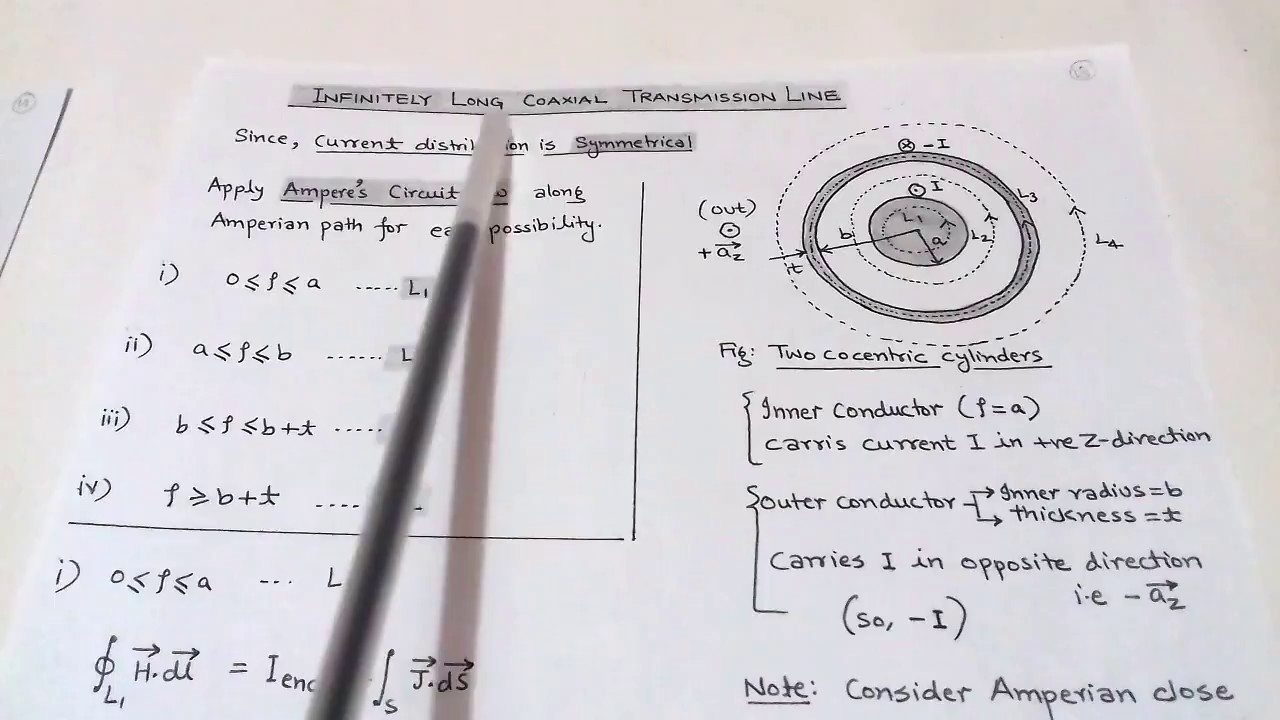 INFINITELY LONG COAXIAL TRANSMISSION LINE
Since, current is Symmetrical
Apply Ampere's Circuit along
Amperian path for possibility.
i) 0 ≤ ρ ≤ a ..... L₁
ii) a ≤ ρ ≤ b ...... L
iii) b ≤ ρ ≤ b+t .....
iv) ρ ≥ b+t ....
i) 0 ≤ ρ ≤ a ... L
∮L₁ H⃗.dl⃗ = Ienc ∫S J⃗.dS⃗
15
(out)
⊙
+a⃗z
⊗ -I
⊙ I
L₁
L₂
L₃
L₄
a
b
t
Fig: Two cocentric cylinders
Inner conductor (ρ=a)
carris current I in +ve Z-direction
Outer conductor → Inner radius = b
→ thickness = t
Carries I in opposite direction
i.e -a⃗z
(so, -I)
Note: Consider Amperian close